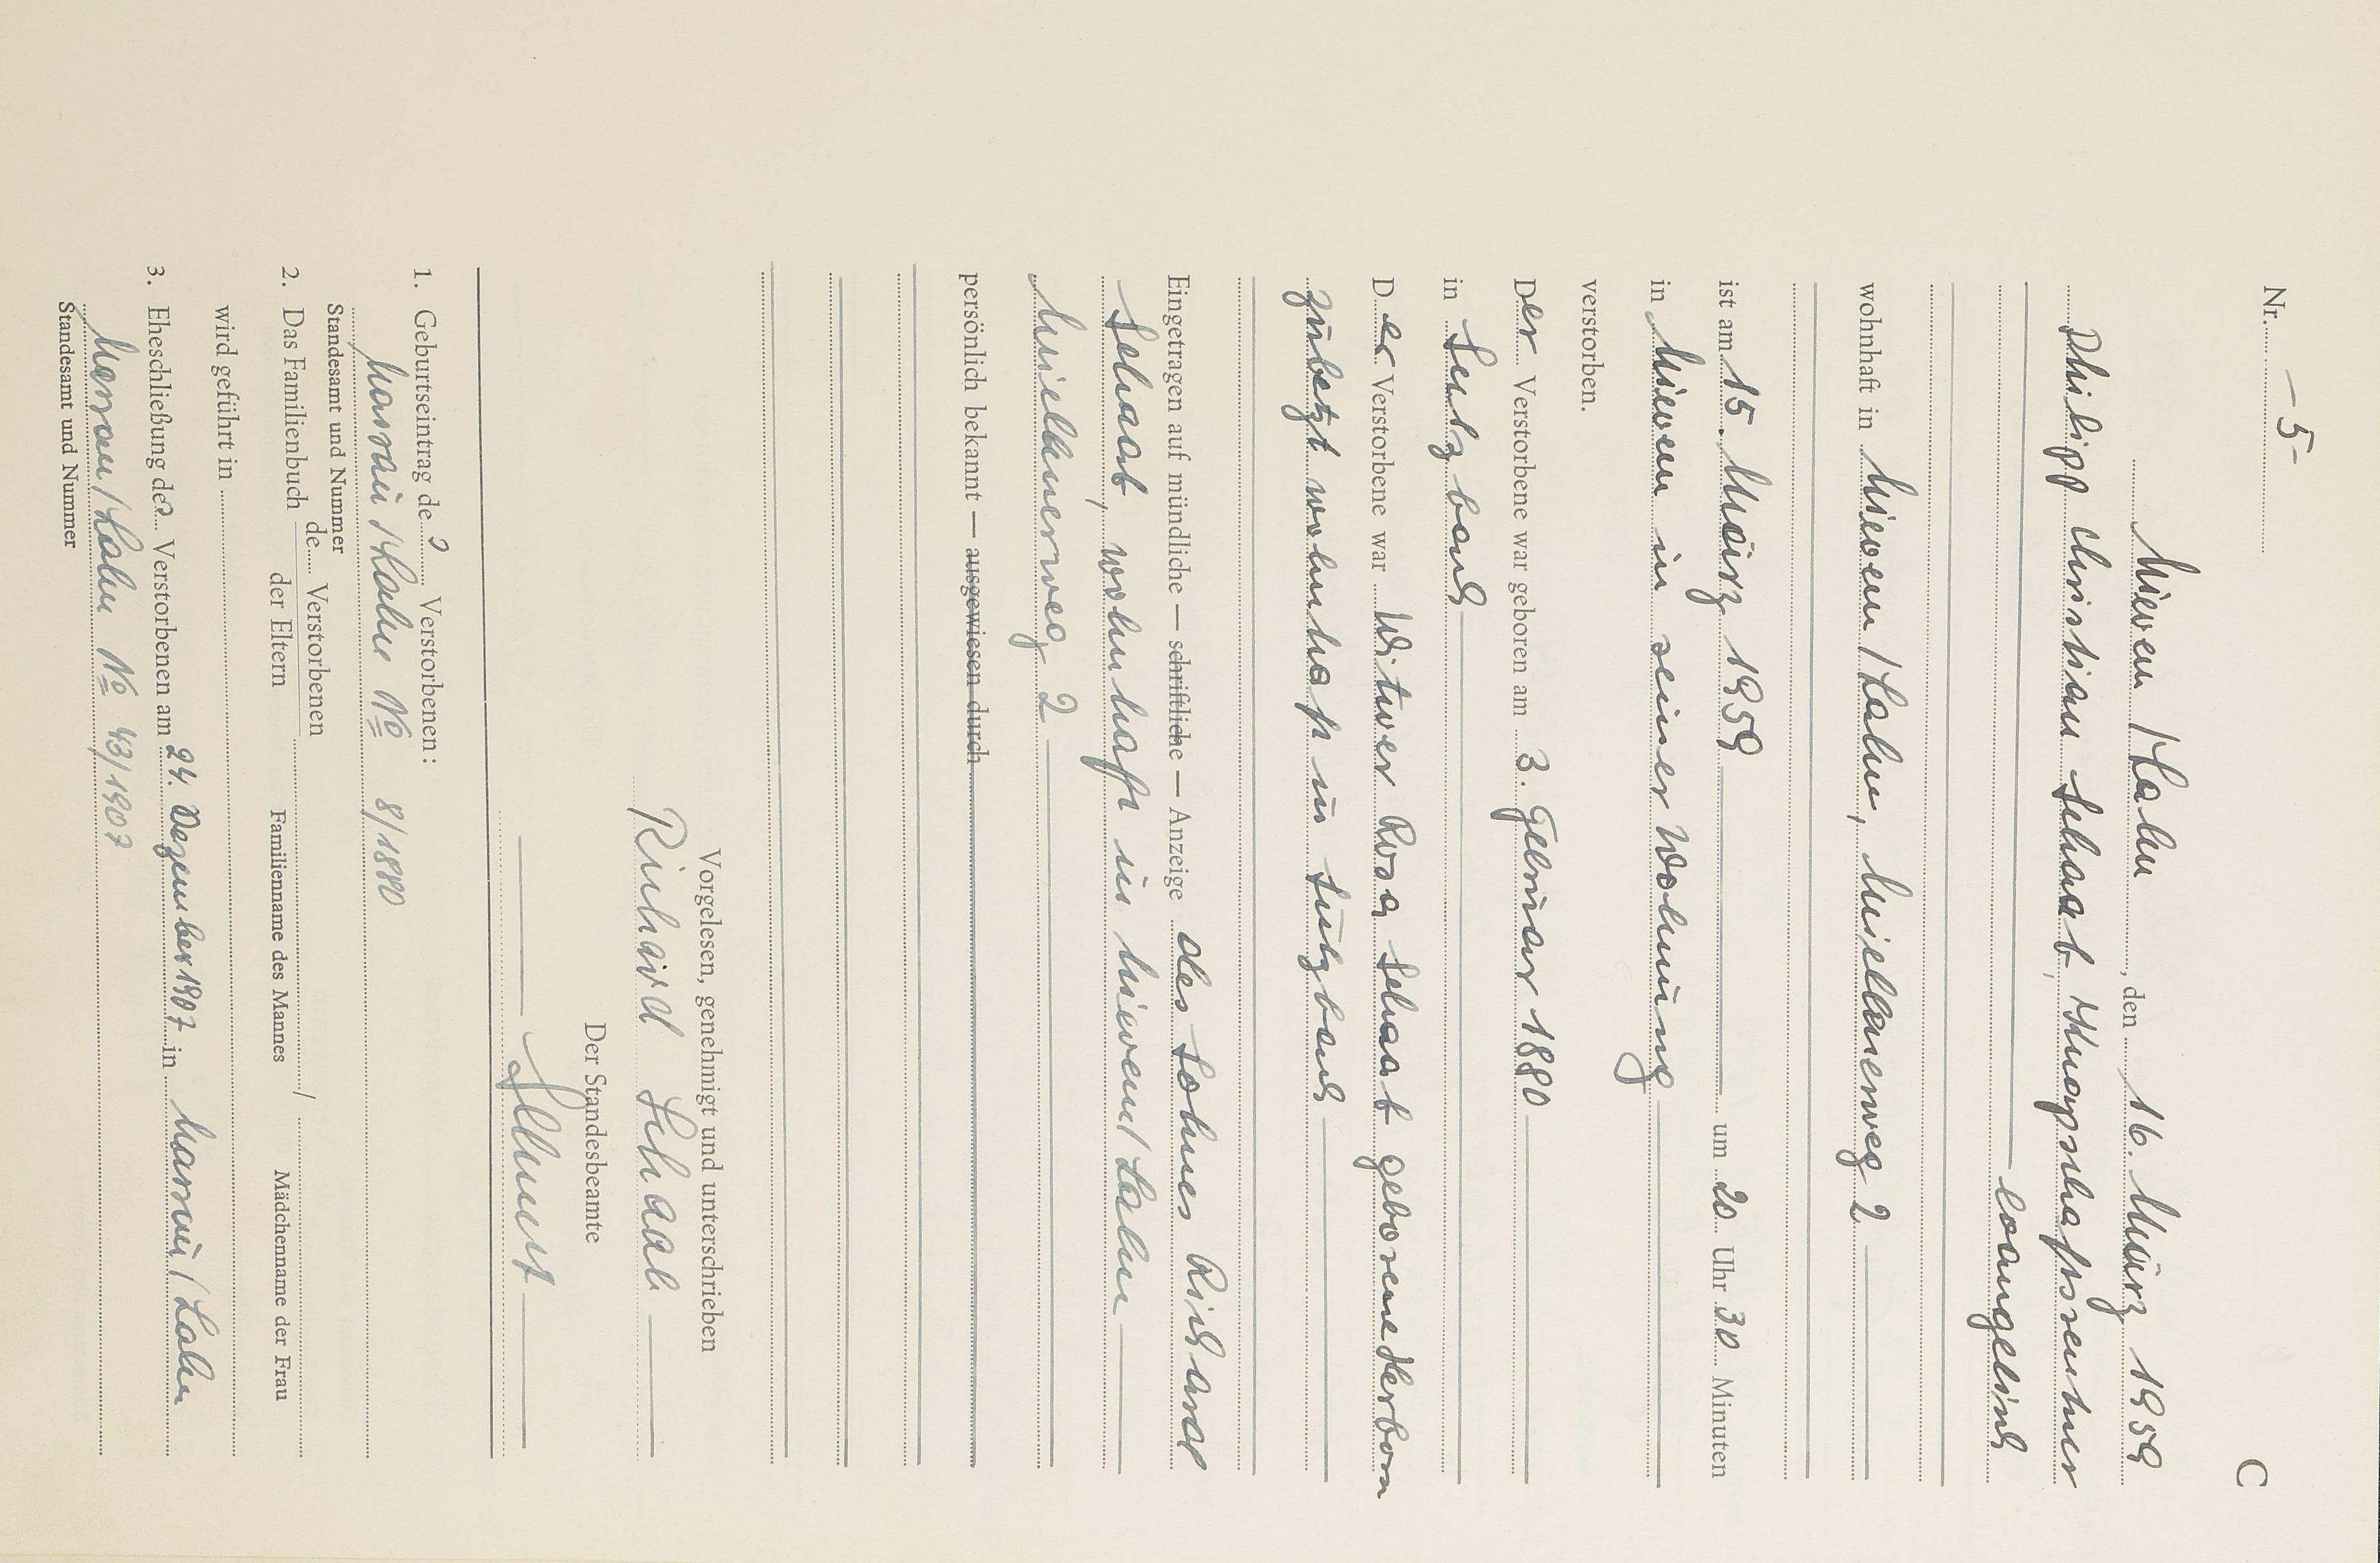 Nr. – 5 –
C
Nievern / Lahn, den 16. März 1959
Philipp Christian Schaab, Knappschaftsrentner
evangelisch
wohnhaft in Nievern / Lahn, Miellenerweg 2
ist am 15. März 1959 um 20 Uhr 30 Minuten
in Nievern in seiner Wohnung
verstorben.
Der Verstorbene war geboren am 3. Februar 1880
in Sulzbach
Der Verstorbene war Witwer Rosa Schaab geborene Herborn
zuletzt wohnhaft in Sulzbach
Eingetragen auf mündliche — schriftliche — Anzeige des Sohnes Richard
Schaab, wohnhaft in Nievern / Lahn
Miellenerweg 2
persönlich bekannt — ausgewiesen durch
Vorgelesen, genehmigt und unterschrieben
Richard Schaab
Der Standesbeamte
1. Geburtseintrag des Verstorbenen:
Nassau / Lahn No 8/1880
Standesamt und Nummer
2. Das Familienbuch de Verstorbenen
der Eltern
/
Familienname des Mannes Mädchenname der Frau
wird geführt in
3. Eheschließung des Verstorbenen am 24. Dezember 1907 in Nassau / Lahn
Nassau / Lahn No 43/1907
Standesamt und Nummer